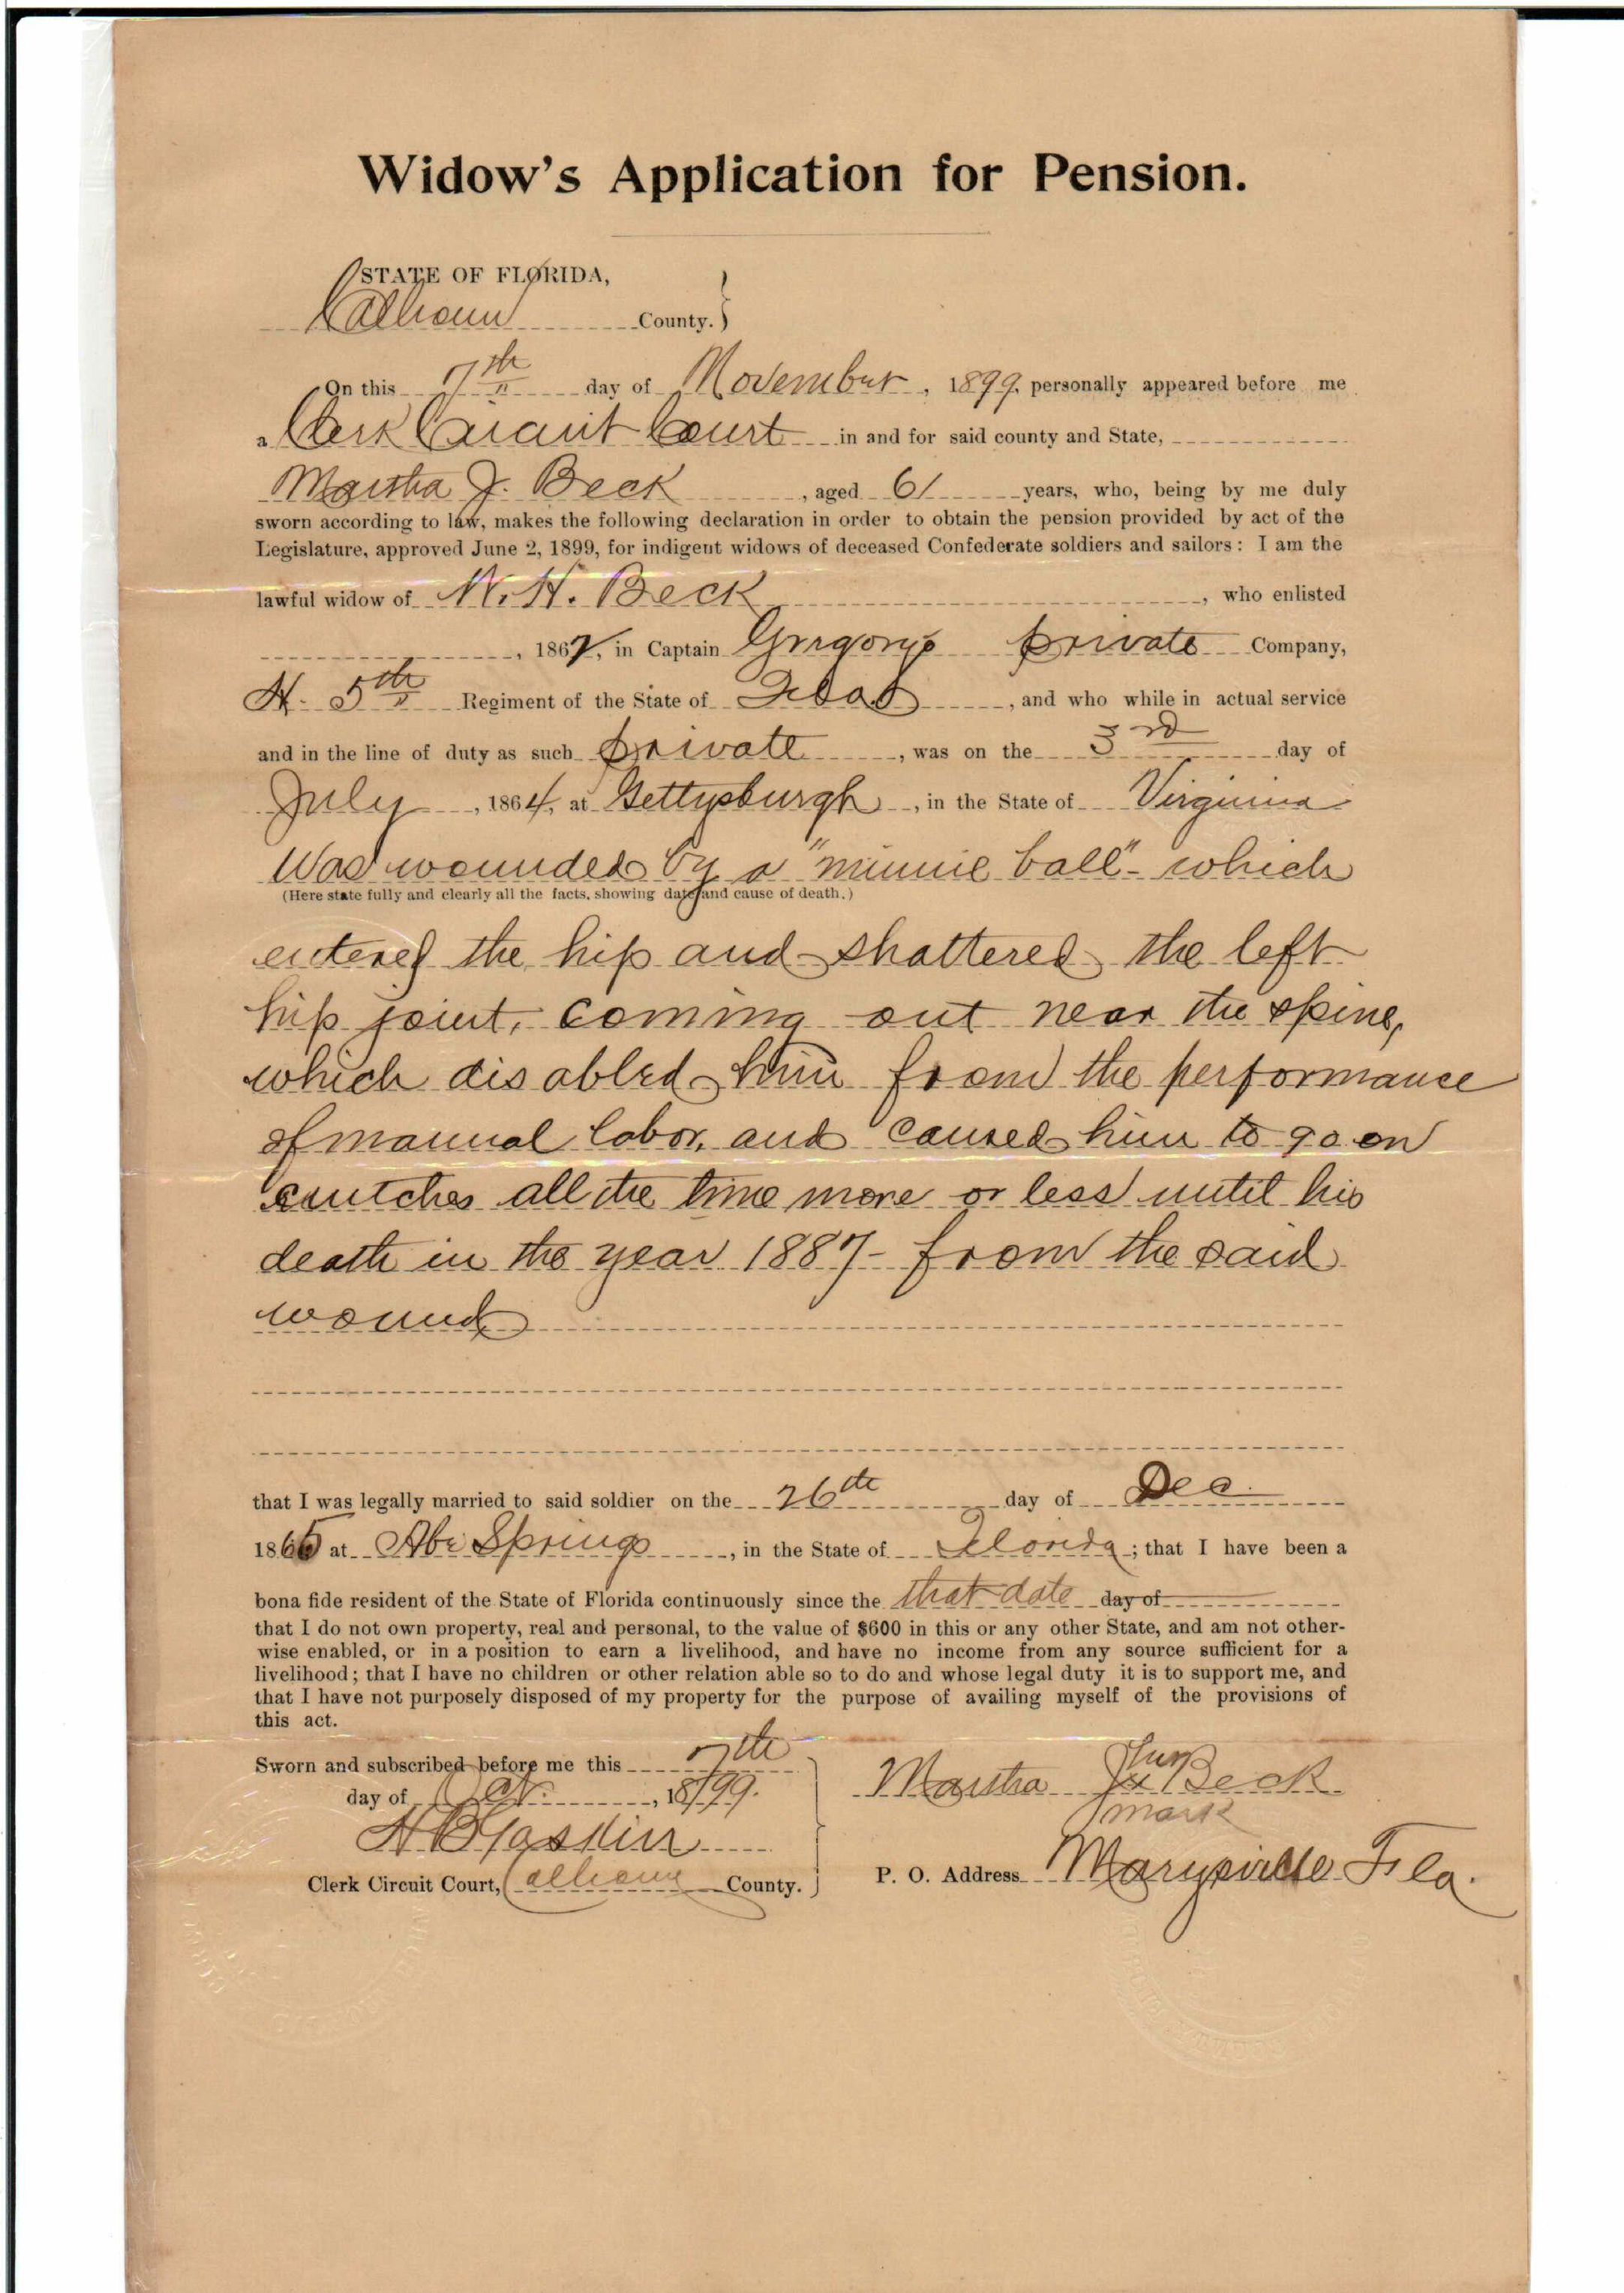 Widow's Application for Pension.
STATE OF FLORIDA,
Calhoun County.
On this 7th day of November, 1899, personally appeared before me
a Clerk Circuit Court in and for said county and State,
Martha J. Beck, aged 61 years, who, being by me duly
sworn according to law, makes the following declaration in order to obtain the pension provided by act of the
Legislature, approved June 2, 1899, for indigent widows of deceased Confederate soldiers and sailors: I am the
lawful widow of W. H. Beck, who enlisted
, 1862, in Captain Gregory's private Company,
H. 5th Regiment of the State of, and who while in actual service
and in the line of duty as such private, was on the 3rd day of
July, 1864, at Gettysburgh, in the State of Virginia
Was wounded by a "minnie ball" - which
(Here state fully and clearly all the facts, showing date and cause of death.)
entered the hip and shattered the left
hip joint, coming out near the spine,
which disabled him from the performance
of manual labor, and caused him to go on
crutches all the time more or less until his
death in the year 1887 - from the said
wound
that I was legally married to said soldier on the 26th day of Dec.
1865 at Abe Springs, in the State of Florida; that I have been a
bona fide resident of the State of Florida continuously since the that date day of
that I do not own property, real and personal, to the value of $600 in this or any other State, and am not other-
wise enabled, or in a position to earn a livelihood, and have no income from any source sufficient for a
livelihood; that I have no children or other relation able so to do and whose legal duty it is to support me, and
that I have not purposely disposed of my property for the purpose of availing myself of the provisions of
this act.
Sworn and subscribed before me this 7th
day of, 1899.
Clerk Circuit Court, Calhoun County.
Martha J. x Beck
mark
P. O. Address Marysville Fla.